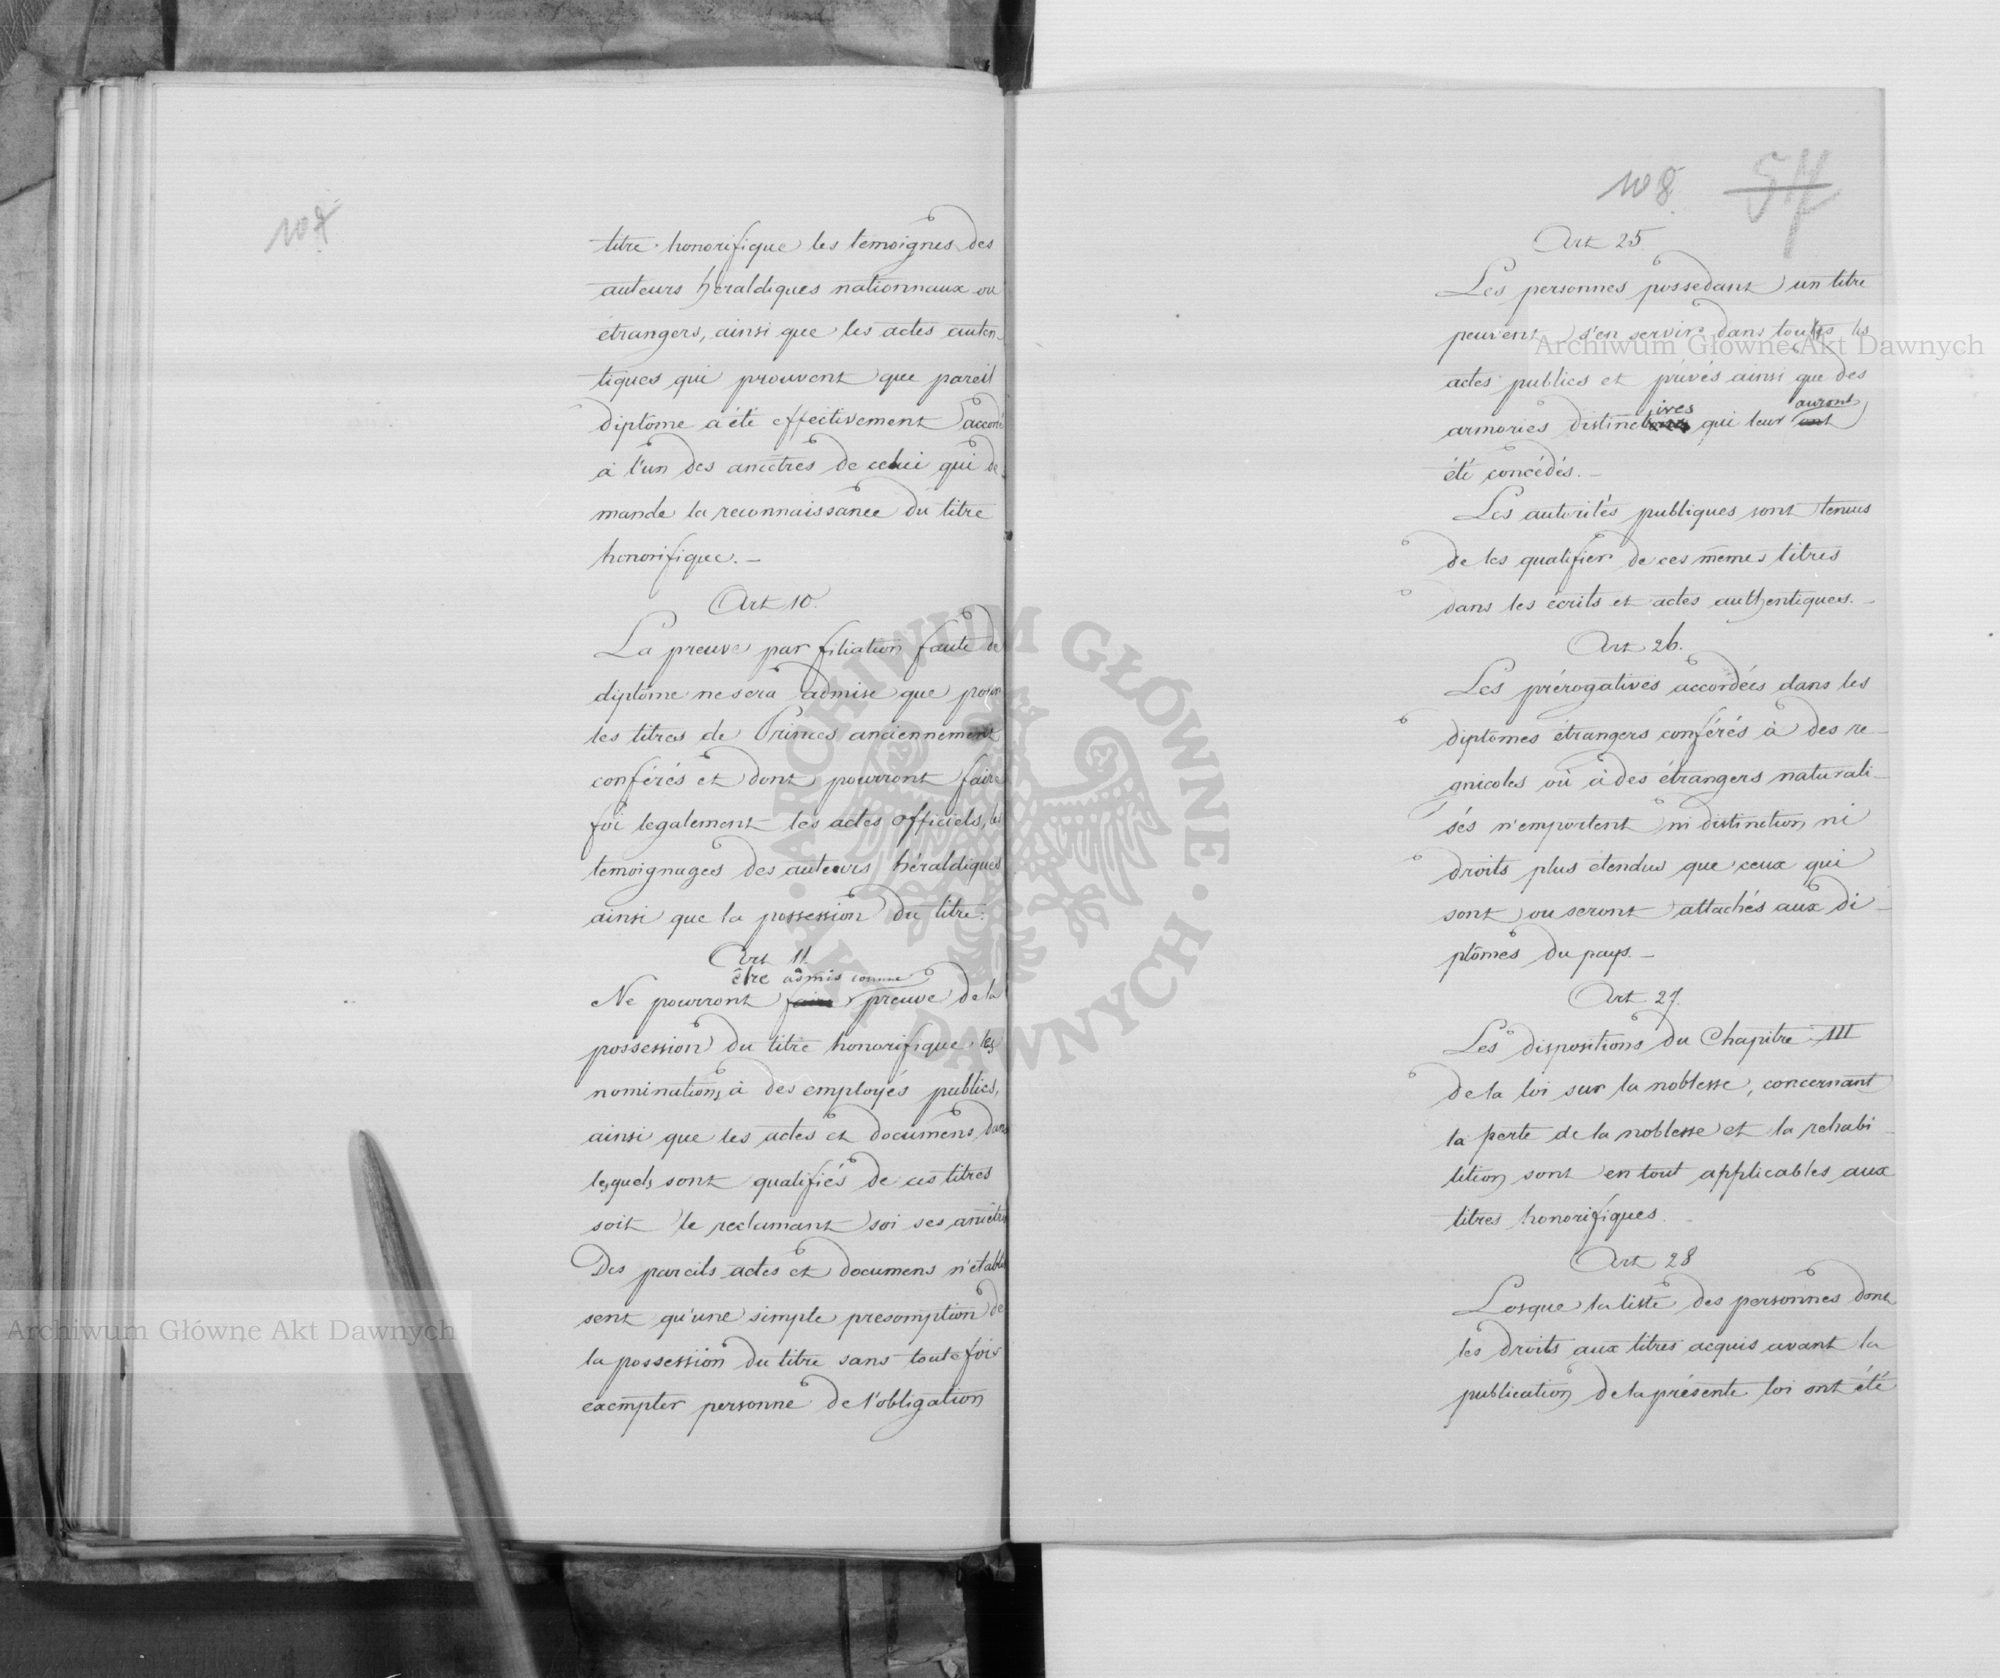 107
titre honorifique les temoignes des
auteurs héraldiques nationnaux ou
étrangers, ainsi que les actes auten-
tiques qui prouvent que pareil
diplôme a été effectivement accordé
à l'un des ancêtres de celui qui de-
mande la reconnaissance du titre
honorifique. —
Art 10.
La preuve par filiation faute de
diplôme ne sera admise que pour
les titres de Princes anciennement
conférés et dont pourront faire
foi legalement les actes officiels, les
temoignages des auteurs héraldiques
ainsi que la possession du titre.
Art 11.
être admis comme
Ne pourront faire preuve de la
possession du titre honorifique les
nominations à des employés publics,
ainsi que les actes et documens dans
lesquels sont qualifiés de ces titres
soit le reclamant soi ses ancêtres
Des pareils actes et documens n'établis
sent qu'une simple presomption de
la possession du titre sans toutefois
exempter personne de l'obligation
108 57
Art 25
Les personnes possedant un titre
peuvent s'en servir dans tous les
actes publics et privés ainsi que des
ives auront
armories distinctives qui leur ont
été concédés. —
Les autorités publiques sont tenues
de les qualifier de ces mêmes titres
dans les écrits et actes authentiques. —
Art 26.
Les prérogatives accordées dans les
diplomes étrangers conférés à des re-
gnicoles où à des étrangers naturali-
sés n'emportent ni distinction ni
droits plus etendus que ceux qui
sont ou seront attachés aux di-
plômes du pays. —
Art 27.
Les dispositions du Chapitre III
de la loi sur la noblesse, concernant
la perte de la noblesse et la rehabi-
lition sont en tout applicables aux
titres honorifiques. —
Art 28
Losque la liste des personnes dont
les droits aux titres acquis avant la
publication de la présente loi ont été
Archiwum Główne Akt Dawnych
Archiwum Główne Akt Dawnych
ARCHIWUM GŁÓWNE AKT DAWNYCH